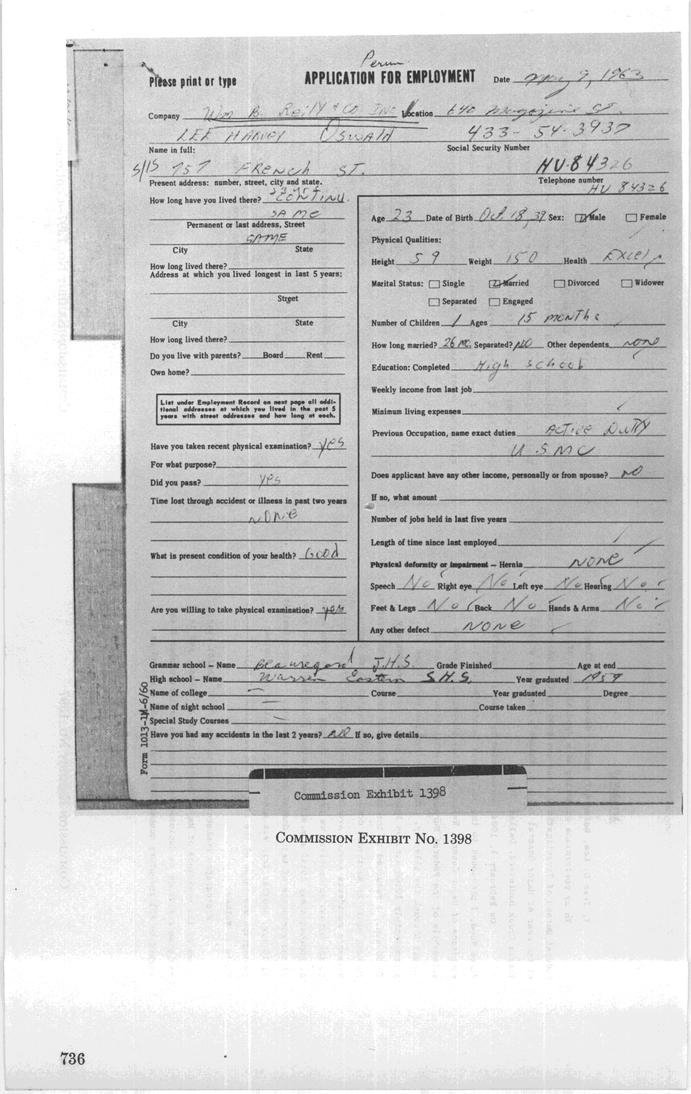 Perm
Please print or type APPLICATION FOR EMPLOYMENT Date May 9, 1963
Company Wm B. Reily & Co INC Location 640 Magazine ST.
LEE HARVEY OSWALD 433-54-3937
Name in full: Social Security Number
757 FRENCH ST. HU-84326
Present address: number, street, city and state. Telephone number
HU 84326
How long have you lived there? CONTINU.
SAME
Permanent or last address, Street
SAME
City State
How long lived there?
Address at which you lived longest in last 5 years:
Street
City State
How long lived there?
Do you live with parents? Board Rent
Own home?
List under Employment Record on next page all addi-
tional addresses at which you lived in the past 5
years with street addresses and how long at each.
Have you taken recent physical examination? yes
For what purpose?
Did you pass? yes
Time lost through accident or illness in past two years
NONE
What is present condition of your health? Good
Are you willing to take physical examination? yes
Age 23 Date of Birth Oct 18, 39 Sex: Male Female
Physical Qualities:
Height 5 9 Weight 150 Health Excel
Marital Status: Single Married Divorced Widower
Separated Engaged
Number of Children 1 Ages 15 months
How long married? 26 mo. Separated? NO Other dependents none
Education: Completed High school
Weekly income from last job
Minimum living expenses
Previous Occupation, name exact duties ACTIVE DUTY
U.S.M.C
Does applicant have any other income, personally or from spouse? NO
If so, what amount
Number of jobs held in last five years
Length of time since last employed
Physical deformity or impairment – Hernia NONE
Speech No Right eye No Left eye No Hearing No
Feet & Legs No Back No Hands & Arms No
Any other defect NONE
Grammar school – Name Beauregard J.H.S. Grade Finished Age at end
High school – Name Warren Eastern S.H.S. Year graduated 1959
Name of college – Course Year graduated Degree
Name of night school – Course taken
Special Study Courses –
Have you had any accidents in the last 2 years? NO If so, give details
Commission Exhibit 1398
COMMISSION EXHIBIT NO. 1398
736